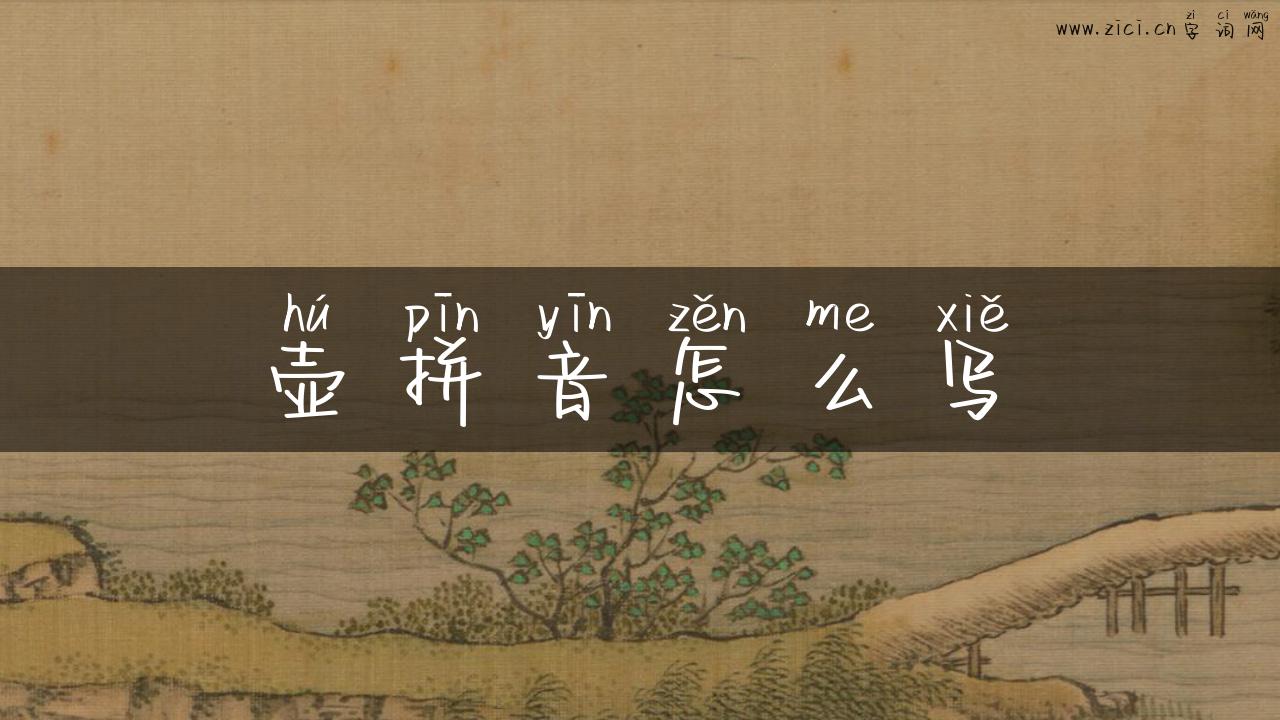 zì cí wǎng
www.zici.cn 字 词 网
hú pīn yīn zěn me xiě
壶 拼 音 怎 么 写